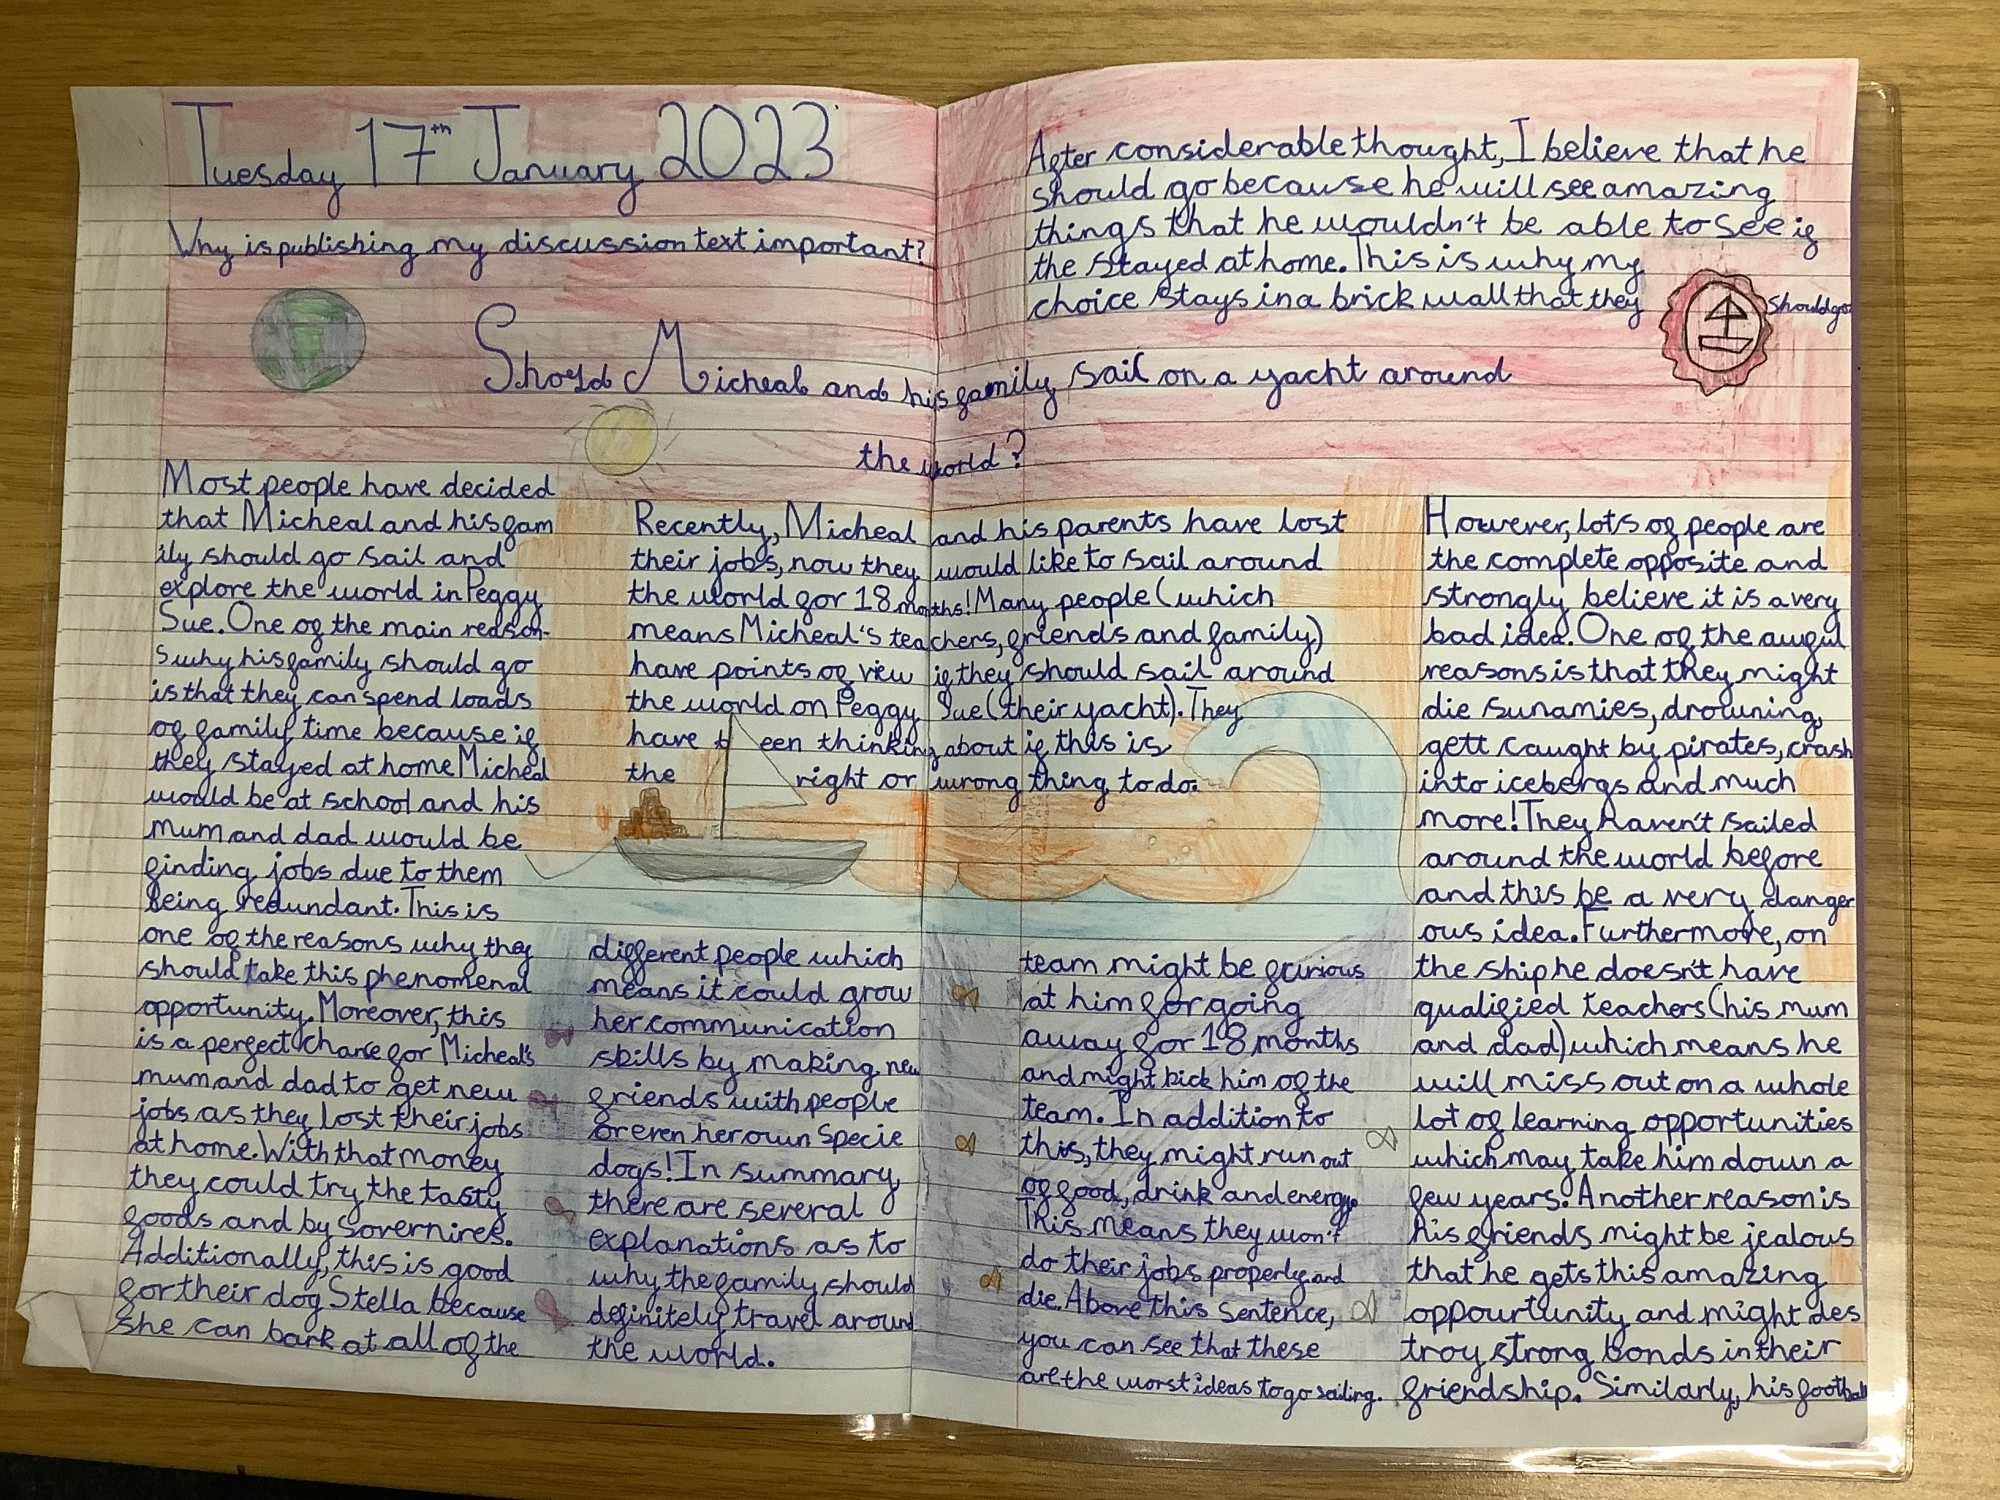 Tuesday 17th January 2023
Why is publishing my discussion text important?
Should Micheal and his family sail on a yacht around
the world?
Recently, Micheal and his parents have lost
their jobs, now they would like to sail around
the world for 18 months! Many people (which
means Micheal's teachers, friends and family)
have points of view if they should sail around
the world on Peggy Sue (their yacht). They
have been thinking about if this is
the right or wrong thing to do.
Most people have decided
that Micheal and his fam
ily should go sail and
explore the world in Peggy
Sue. One of the main reason-
s why his family should go
is that they can spend loads
of family time because if
they stayed at home Micheal
would be at school and his
mum and dad would be
finding jobs due to them
being redundant. This is
one of the reasons why they
should take this phenomenal
opportunity. Moreover, this
is a perfect chance for Micheal's
mum and dad to get new
jobs as they lost their jobs
at home. With that money
they could try the tasty
foods and by sovernires.
Additionally, this is good
for their dog Stella because
she can bark at all of the
different people which
means it could grow
her communication
skills by making new
friends with people
or even her own specie
dogs! In summary,
there are several
explanations as to
why the family should
definitely travel around
the world.
However, lots of people are
the complete opposite and
strongly believe it is a very
bad idea. One of the awful
reasons is that they might
die sunamies, drowning,
gett caught by pirates, crash
into icebergs and much
more! They haven't sailed
around the world before
and this be a very danger
ous idea. Furthermore, on
the ship he doesn't have
qualified teachers (his mum
and dad) which means he
will miss out on a whole
lot of learning opportunities
which may take him down a
few years. Another reason is
his friends might be jealous
that he gets this amazing
oppourtunity and might des
troy strong bonds in their
friendship. Similarly, his football
team might be furious
at him for going
away for 18 months
and might kick him of the
team. In addition to
this, they might run out
of food, drink and energy.
This means they won't
do their jobs properly and
die. Above this sentence,
you can see that these
are the worst ideas to go sailing.
After considerable thought, I believe that he
should go because he will see amazing
things that he wouldn't be able to see if
the stayed at home. This is why my
choice stays in a brick wall that they should go